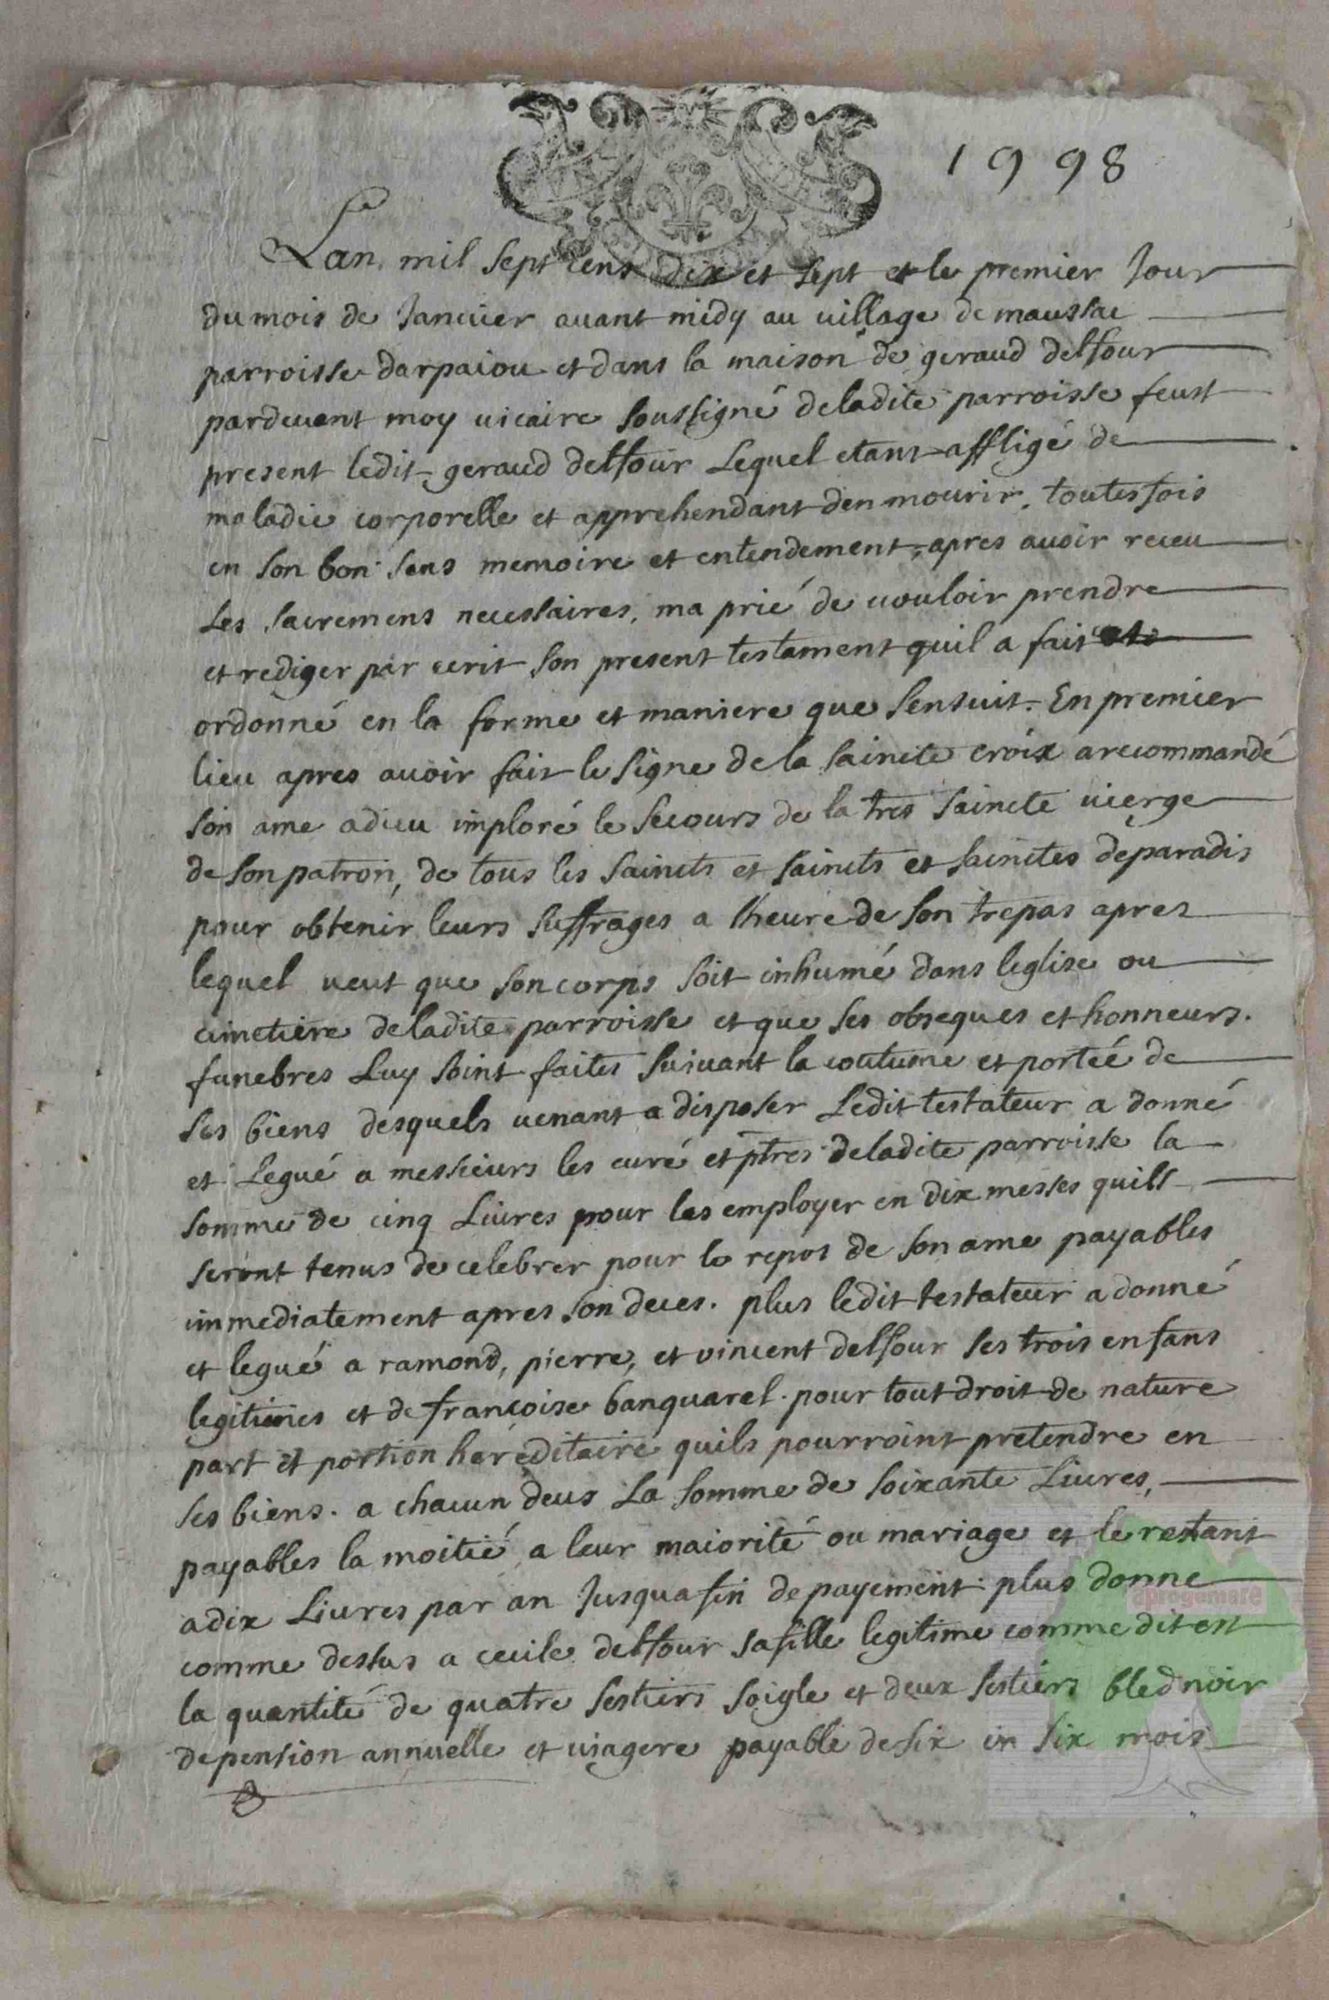 1998
Lan mil sept cens dix et sept et le premier Jour
du mois de Janvier avant midy au village de maussac
parroisse darpaiou et dans la maison de geraud delfour
pardevent moy vicaire soussigné deladite parroisse feust
present ledit geraud delfour Lequel etant affligé de
maladie corporelle et apprehendant den mourir, toutesfois
en son bon sens memoire et entendement, apres avoir receu
Les sacremens necessaires, ma prié de vouloir prendre
et rediger par ecrit son present testament quil a fait et
ordonné en la forme et maniere que sensuit. En premier
lieu apres avoir fait le signe de la saincte croix a recommandé
son ame adieu imploré le secours de la tres saincte vierge
de son patron, de tous les saincts et saincts et sainctes deparadis
pour obtenir leurs suffrages a lheure de son trepas apres
lequel veut que son corps soit inhumé dans leglise ou
cimetiere deladite parroisse et que ses obseques et honneurs.
funebres Luy soint faites suivant la coutume et portée de
ses biens desquels venant a disposer Ledit testateur a donné
et Legué a messieurs les curé et ptres deladite parroisse la
somme de cinq Livres pour les employer en dix messes quils
seront tenus de celebrer pour le repos de son ame payables
immediatement apres son deces. plus ledit testateur a donné
et legué a ramond, pierre, et vincent delfour ses trois enfans
legitimes et de françoise banquarel. pour tout droit de nature
part et portion hereditaire quils pourroint pretendre en
ses biens. a chacun deus La somme de soixante Livres,
payables la moitié a leur maiorité ou mariage et le restant
a dix Livres par an Jusqua fin de payement. plus donne
comme dessus a cecile delfour sa fille legitime comme dit est
la quantité de quatre sestiers soigle et deux sestiers bled noir
de pension annuelle et viagere payable de six in six mois
aprogemere